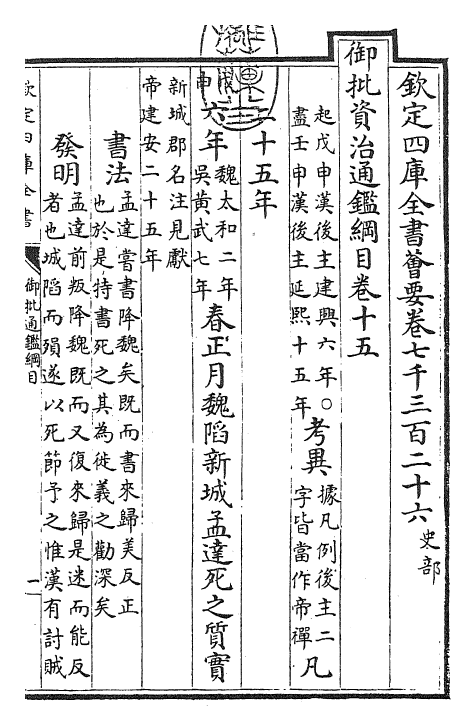 欽定四庫全書薈要卷七千三百二十六 史部
御批資治通鑑綱目卷十五
起戊申漢後主建興六年○
盡壬申漢後主延熙十五年
考異
據凡例後主二
字皆當作帝禪
凡
二十五年
戊申
六年
魏太和二年
吳黃武七年
春正月魏陷新城孟達死之
質實
新城郡名注見獻
帝建安二十五年
書法
孟達嘗書降魏矣既而書來歸美反正
也於是特書死之其為徙義之勸深矣
發明
孟達前叛降魏既而又復來歸是迷而能反
者也城陷而殞遂以死節予之惟漢有討賊
欽定四庫全書
御批通鑑綱目
一